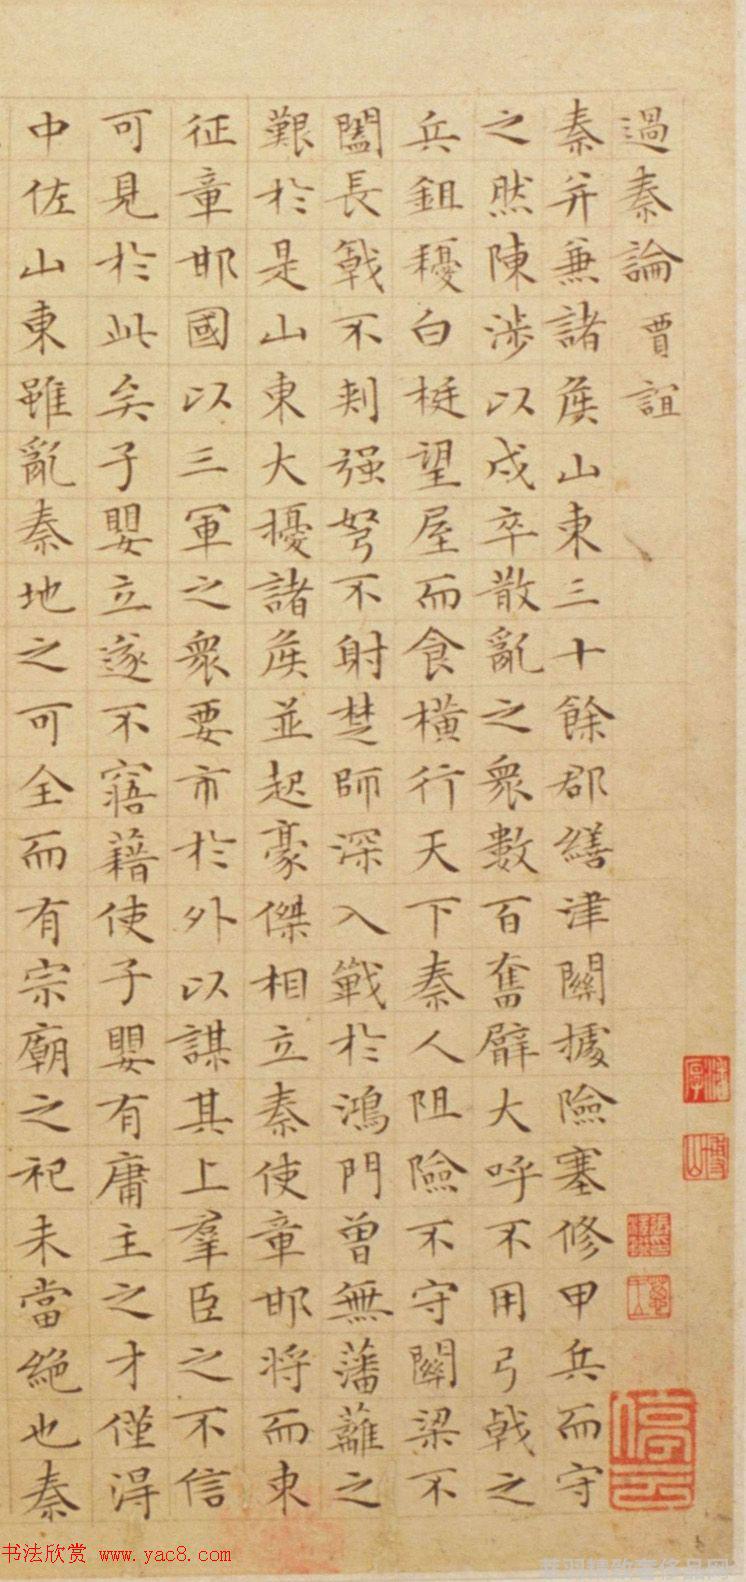 過秦論 賈誼
秦并兼諸侯山東三十餘郡繕津關據險塞修甲兵而守
之然陳涉以戍卒散亂之衆數百奮臂大呼不用弓戟之
兵鉏耰白梃望屋而食橫行天下秦人阻險不守關梁不
闔長戟不刺强弩不射楚師深入戰於鴻門曾無藩蘺之
艱於是山東大擾諸侯並起豪傑相立秦使章邯將而東
征章邯國以三軍之衆要市於外以謀其上羣臣之不信
可見於此矣子嬰立遂不寤藉使子嬰有庸主之才僅得
中佐山東雖亂秦地之可全而有宗廟之祀未當絕也秦
停云
书法欣赏 www.yac8.com